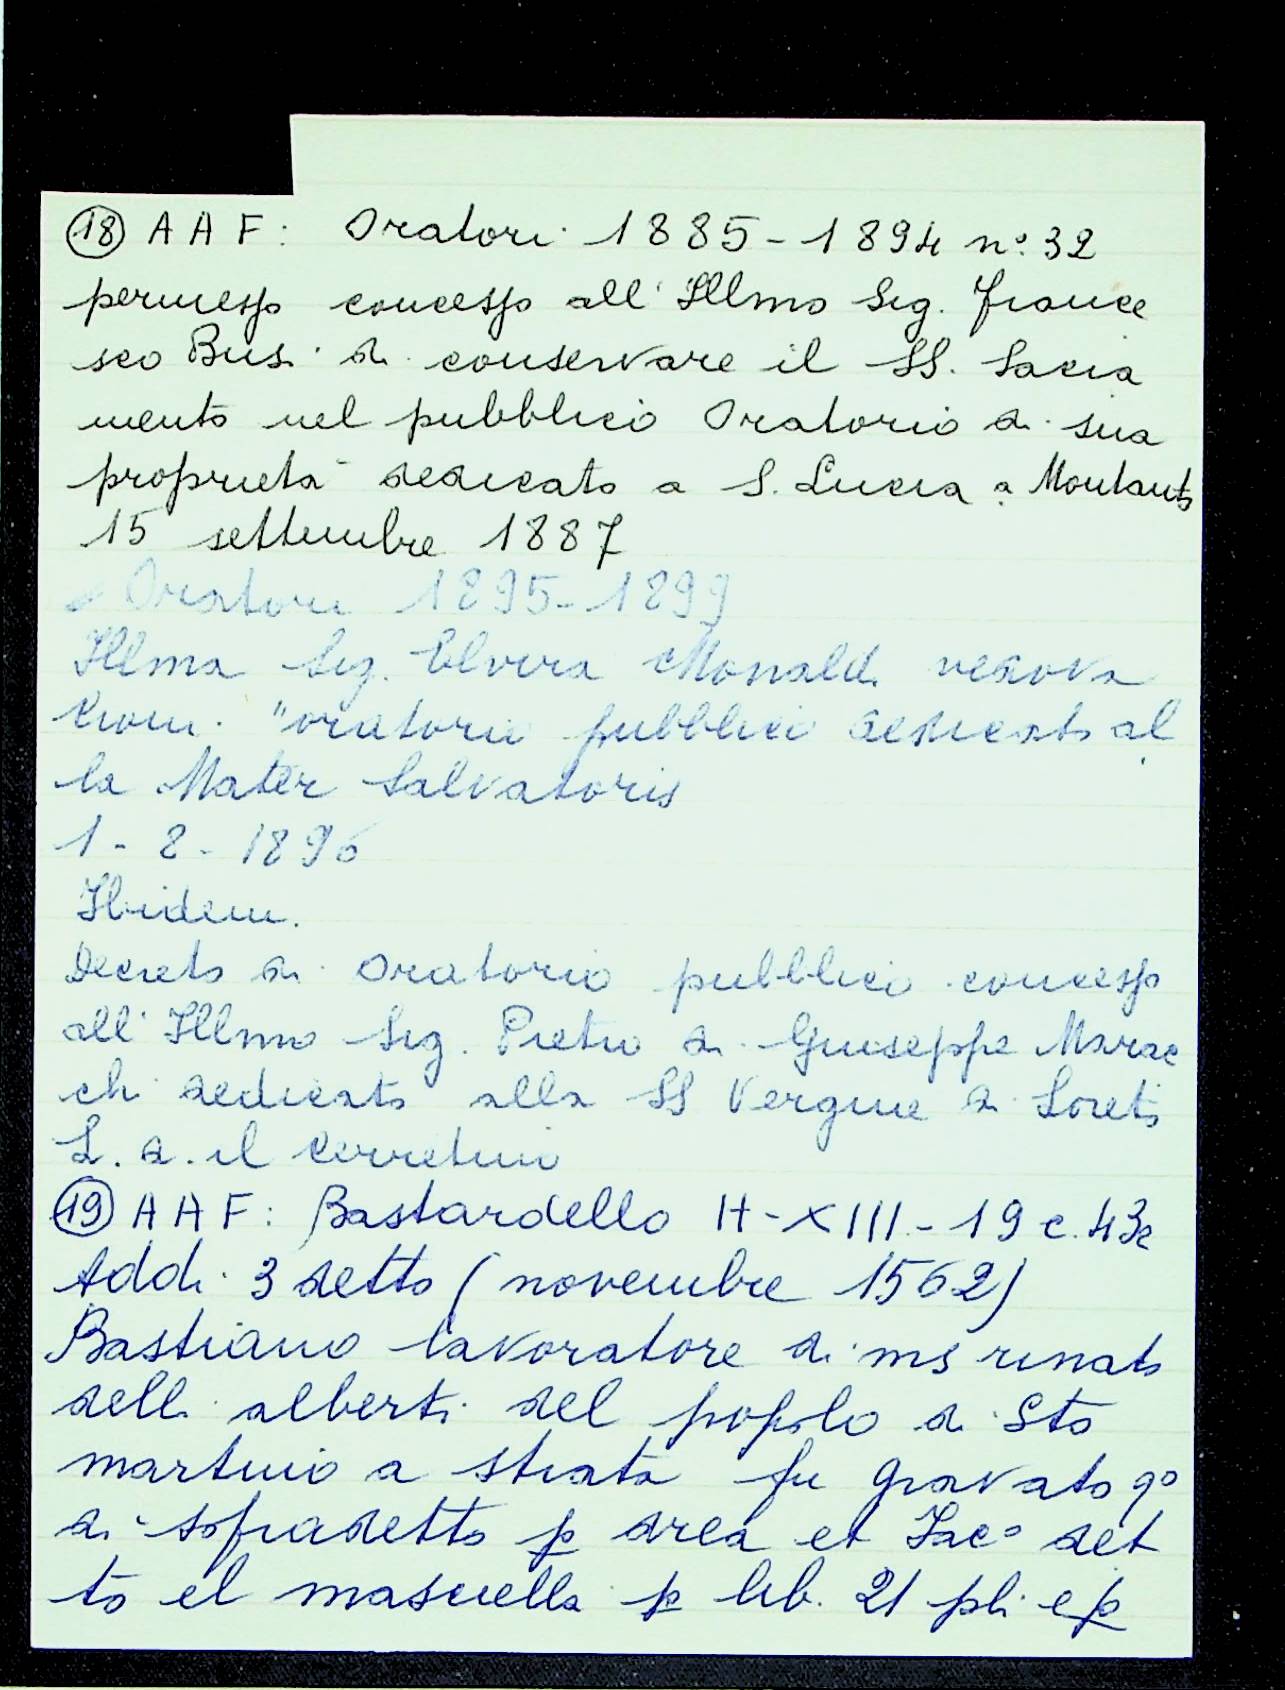 (18) A A F: Oratori 1885-1894 n° 32
permesso concesso all' Illmo Sig. France
sco Busi di conservare il SS. Sacra
mento nel pubblico Oratorio di sua
proprietà dedicato a S. Lucia a Montauto
15 settembre 1887
Oratori 1895-1899
Illma Sig. Elvira Monaldi vedova
"oratorio pubblico dedicato al
la Mater Salvatoris
1-8-1896
Ibidem.
Decreto di Oratorio pubblico concesso
all' Illmo Sig. Pietro di Giuseppe Marac
chi dedicato alla SS Vergine di Loreto
L. d. il Cerretino
(19) A A F: Bastardello H-XIII-19 c. 43r
Addi 3 detto (novembre 1562)
Bastiano lavoratore di ms rinato
delli alberti del popolo di Sto
martino a strata fu gravato q°
di sopradetto p drea et Iac° det
to el mascella p lib. 21 pli e p